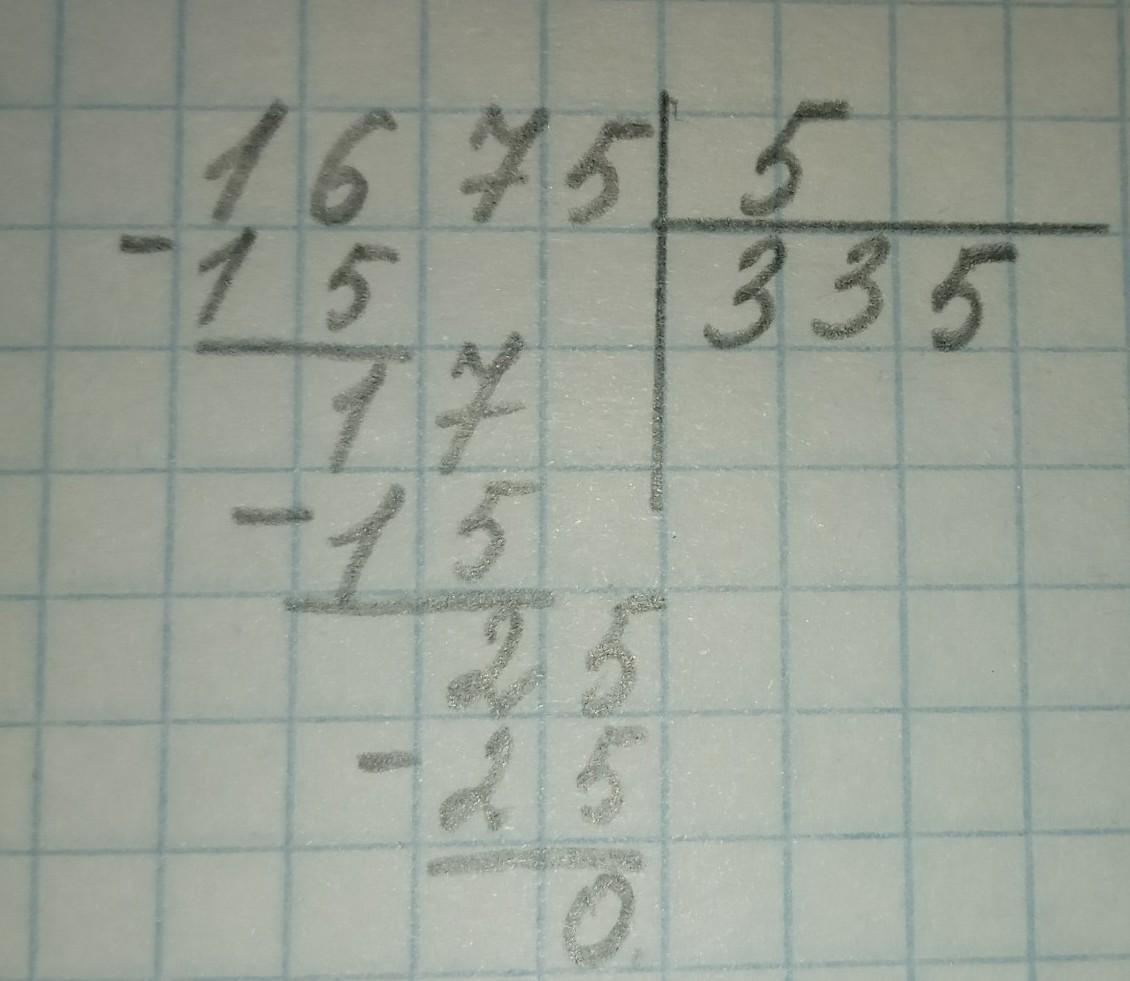 1675 5
-15 335
17
-15
25
-25
0